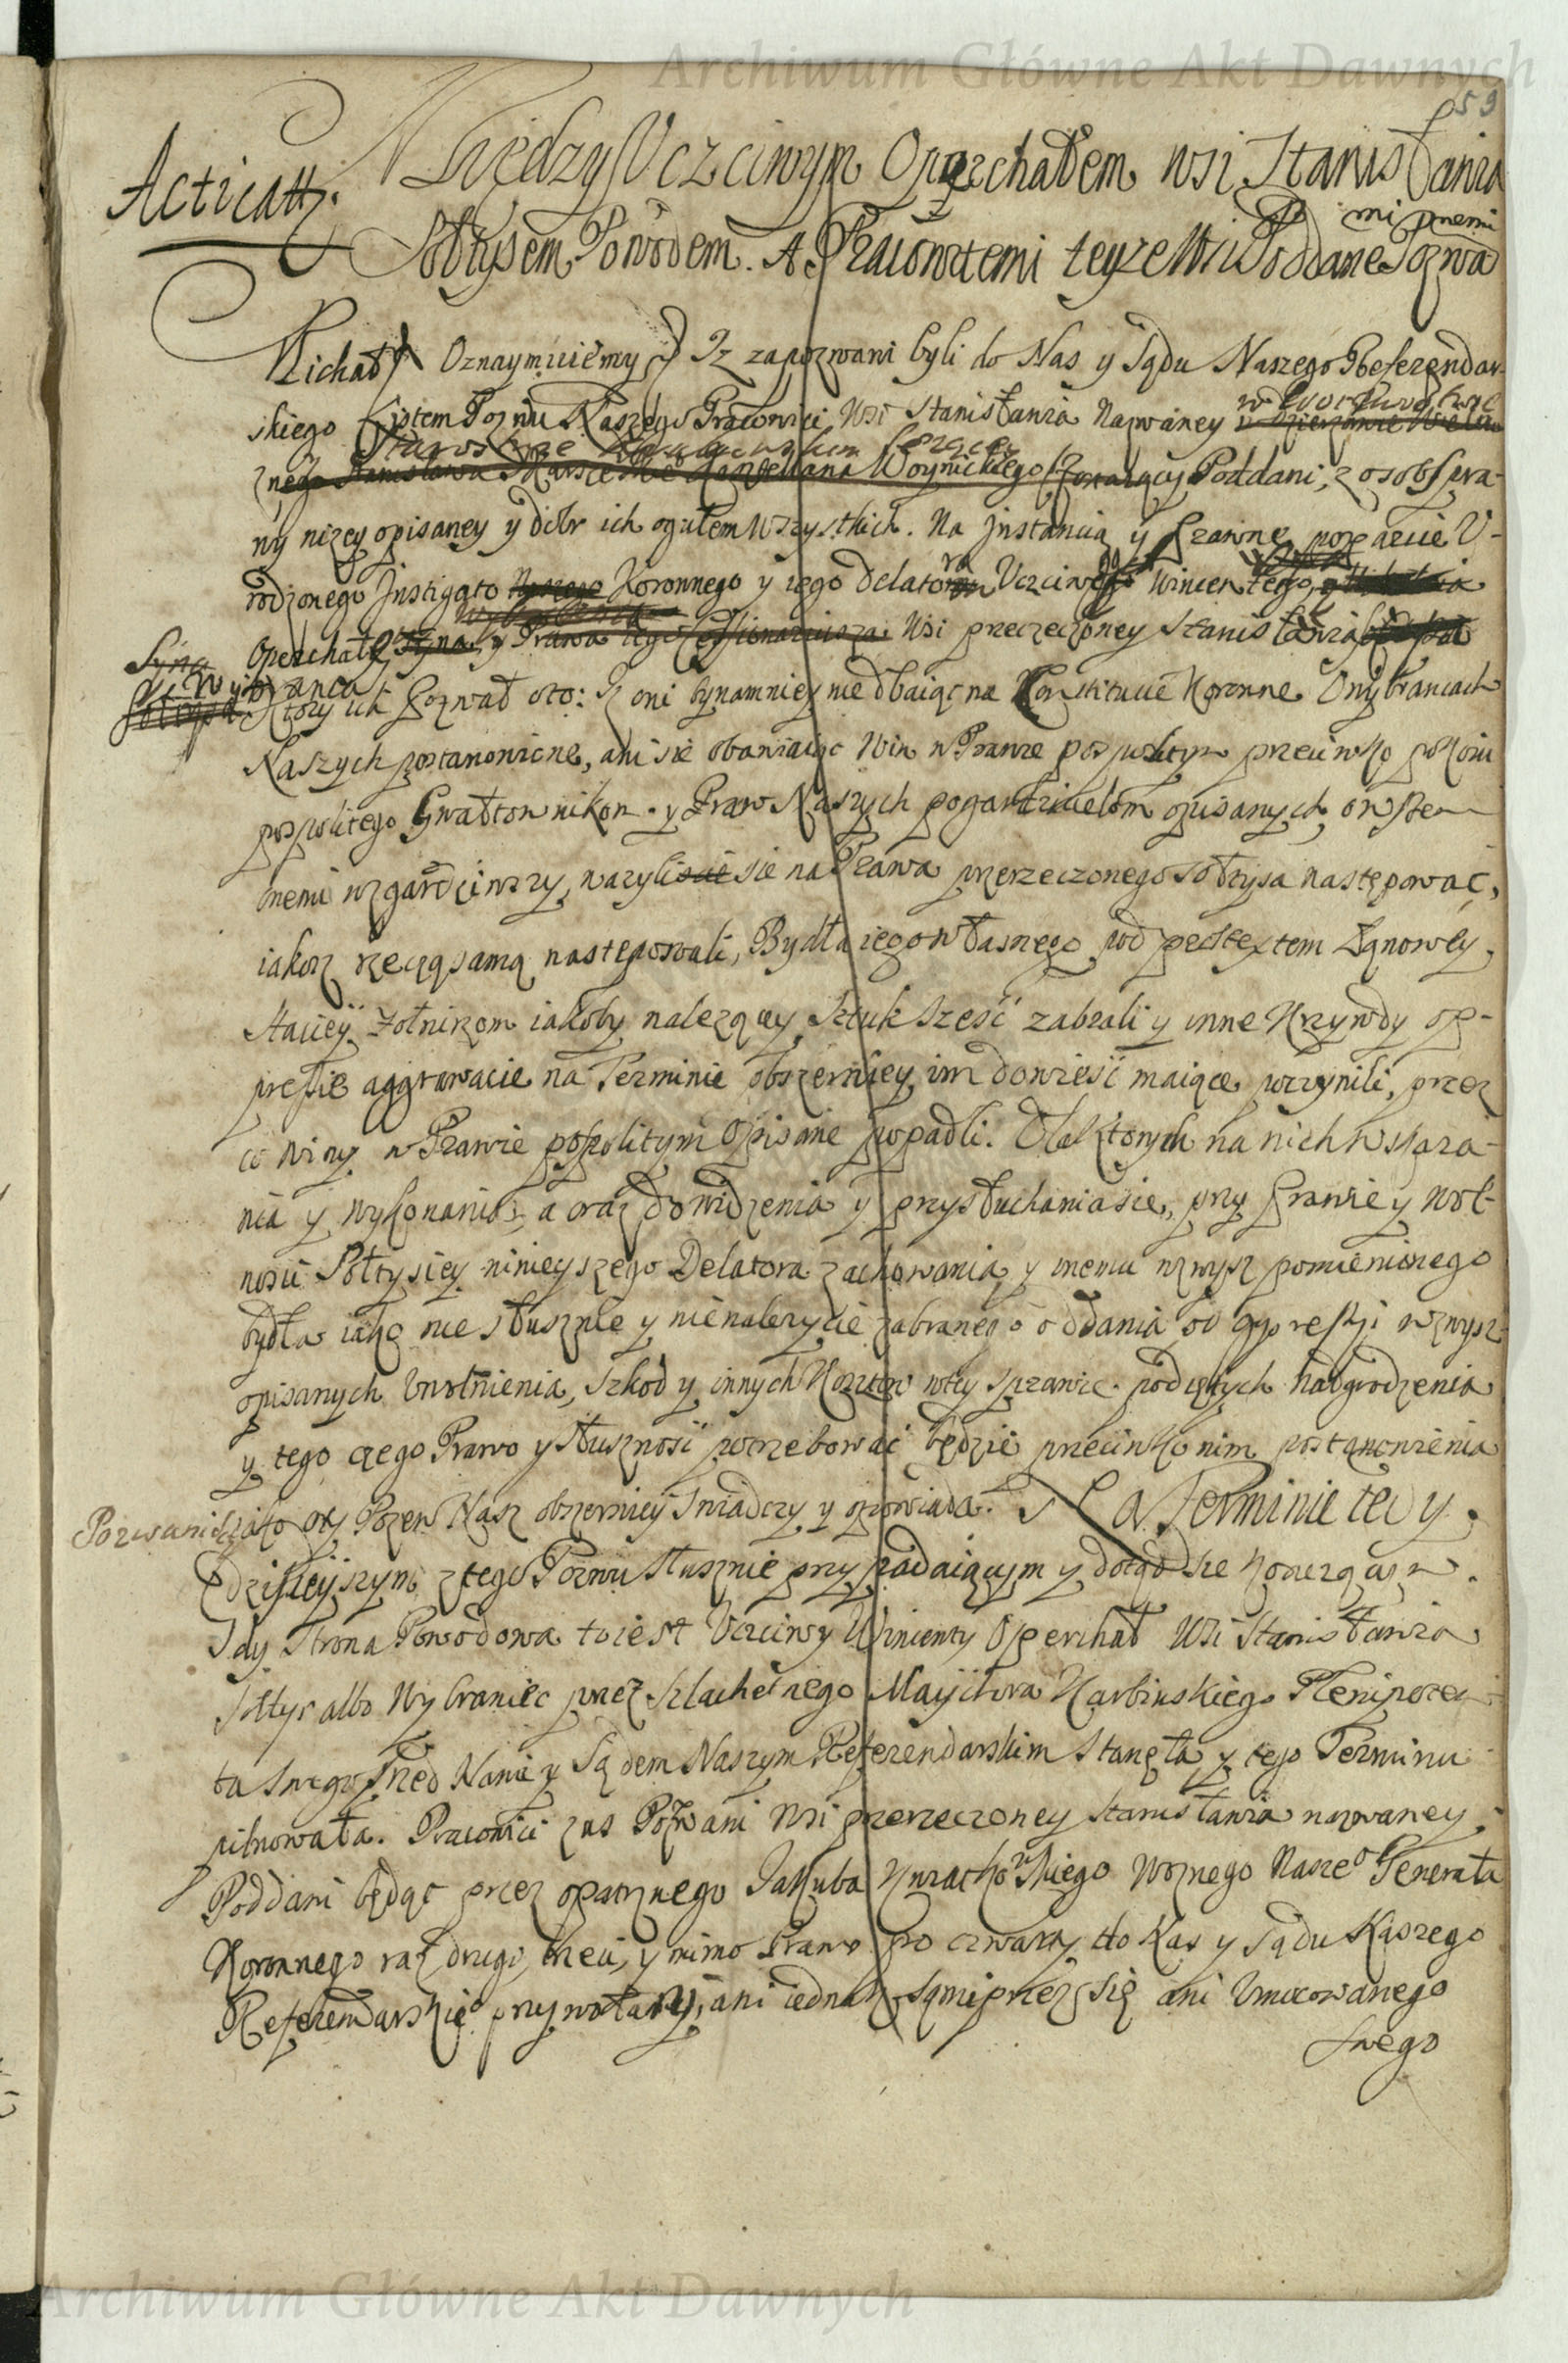 Archiwum Główne Akt Dawnych
53
Acticatt.
Między Uczciwym Operchałem wsi Stanisławia
Sołtysem Powodem. A Pracowitemi teyze Wsi Poddane Pozwa
mi pnemi
Michał Oznaymuiemy Iz zapozwani byli do Nas y Sądu Naszego Referendar-
skiego Listem Pozwu Naszego Pracowici Wsi Stanisławia Nazwaney
znego Stanisława Kasztellana Woynickiego Poddani, z osob spra-
wy nizey opisaney y dobr ich ogułem wszystkich. Na Instancią y Prawne poparcie U-
rodzonego Instigato Naszego Koronnego y iego delatora Uczciwego Wincentego,
Syna Operchała y Prawa iego Wsi przeczoney Stanisławia
Wybranca
Sołtysa Ktory ich Pozwał oto: Iz oni bynamniey nie dbaiąc na Constitucie Koronne O wybrancach
Naszych postanowione, ani sie obawiaiąc Win w Prawie pospolitym przeciwko pokoiu
pospolitego Gwałtownikom y Praw Naszych pogardzicielom opisanych, owszem
onemi wzgardziwszy, wazyliscie sie na Prawa przerzeczonego Sołtysa następować,
iakosz rzeczą samą następowali, Bydła iego własnego pod pretextem Ząnowey
Staciey Zołnirzom iakoby nalezącey Sztuk szesć zabrali y inne Krzywdy op-
pressie aggrawacie na Terminie obszerniey im dowiesć maiące uczynili, przez
co Winy w Prawie pospolitym Opisane popadli. Dla ktorych na nich wskaza-
nia y wykonania, a oraz do widzenia y przysłuchania sie, przy Prawie y wol-
nosci Sołtysiey ninieyszego Delatora zachowania y onemu wzwysz pomienionego
bydła iako nie słusznie y nienalezycie zabranego oddania od oppressyi wzwysz
opisanych Uwolnienia, Szkod y innych Kosztow wtey sprawie podiętych nadgrodzenia
y tego czego Prawo y słusznosć potrzebować będzie przeciwko nim postanowienia
Pozwani iako oty Pozew Nasz obszerniey swiadczy y opowiada. Na Terminie tedy
dzisieyszym z tego Pozwu słusznie przypadaiącym y dotąd sie koączącym.
Gdy Strona Powodowa to iest Uczciwy Wincenty Operchał Wsi Stanisławia
Sołtys albo Wybraniec przez Szlachetnego Maychra Karbinskiego Plenipoten
ta swego Przed Nami y Sądem Naszym Referendarskim stanęła y tego Terminu
pilnowała. Pracowici zas Pozwani Wsi przerzeczoney Stanisławia nazwaney
Poddani będąc przez opatrznego Jakuba Kurachowskiego Woznego Nasze° Generała
Koronnego raz drugi, trzeci, y mimo Prawo po czwarty do Nas y Sądu Naszego
Referendarskie° przywołani, ani iednak sami przez się ani Umocowanego
swego
Archiwum Główne Akt Dawnych